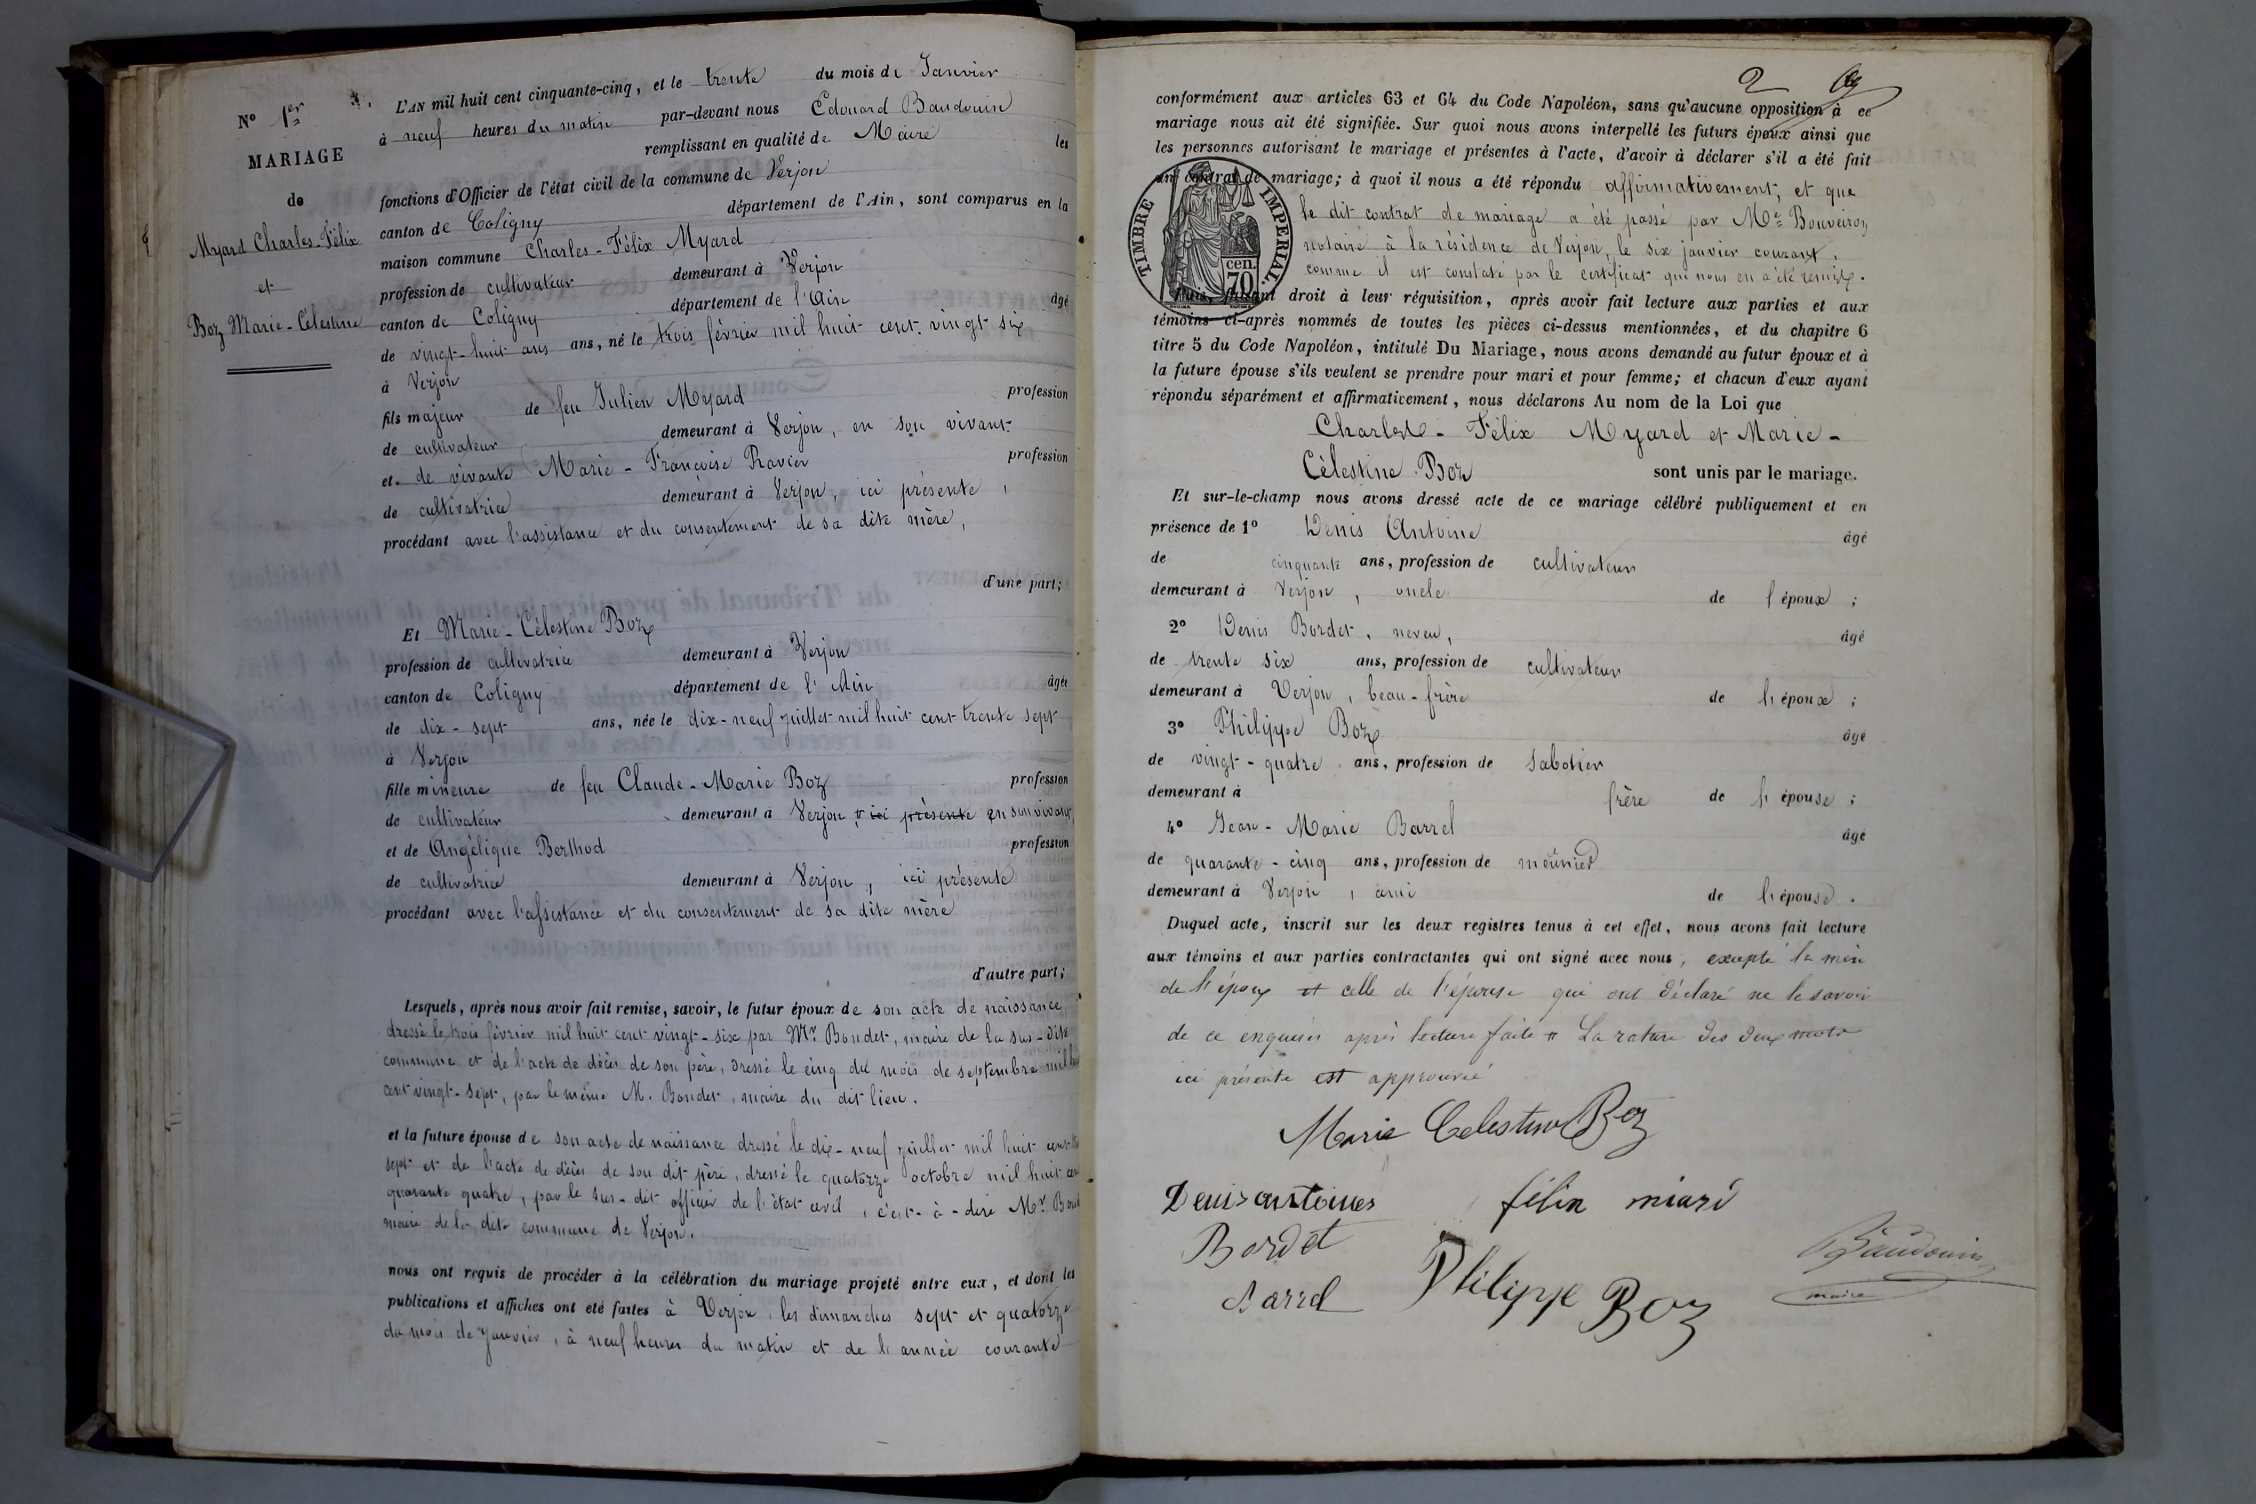 L'AN mil huit cent cinquante-cinq, et le trente du mois de Janvier
N° 1er
à neuf heures du matin par-devant nous Edouard Baudouin
remplissant en qualité de Maire les
MARIAGE
fonctions d'Officier de l'état civil de la commune de Verjon
de
canton de Coligny département de l'Ain, sont comparus en la
Myard Charles-Félix
maison commune Charles-Félix Myard
et
profession de cultivateur demeurant à Verjon
Boz Marie-Célestine
canton de Coligny département de l'Ain âgé
de vingt-huit ans ans, né le trois février mil huit cent vingt six
à Verjon
fils majeur de feu Julien Myard profession
de cultivateur demeurant à Verjon, en son vivant
et de vivante Marie-Françoise Ravier profession
de cultivatrice demeurant à Verjon, ici présente,
procédant avec l'assistance et du consentement de sa dite mère,
d'une part;
Et Marie-Célestine Boz
profession de cultivatrice demeurant à Verjon
canton de Coligny département de l'Ain âgée
de dix-sept ans, née le dix-neuf juillet mil huit cent trente sept
à Verjon
fille mineure de feu Claude-Marie Boz profession
de cultivateur demeurant à Verjon, ici présente en son vivant,
et de Angélique Berthod profession
de cultivatrice demeurant à Verjon, ici présente
procédant avec l'assistance et du consentement de sa dite mère
d'autre part;
Lesquels, après nous avoir fait remise, savoir, le futur époux de son acte de naissance
dressé le trois février mil huit cent vingt-six par Mr Bondet, maire de la sus-dite
commune et de l'acte de décès de son père, dressé le cinq du mois de septembre mil huit
cent vingt-sept, par le même M. Bondet, maire du dit lieu.
et la future épouse de son acte de naissance dressé le dix-neuf juillet mil huit cent
sept et de l'acte de décès de son dit père, dressé le quatorze octobre mil huit cent
quarante quatre, par le sus-dit officier de l'état civil, c'est-à-dire Mr
maire de la dite commune de Verjon.
nous ont requis de procéder à la célébration du mariage projeté entre eux, et dont les
publications et affiches ont été faites à Verjon, les dimanches sept et quatorze
du mois de janvier, à neuf heures du matin et de l'année courante
2
conformément aux articles 63 et 64 du Code Napoléon, sans qu'aucune opposition à ce
mariage nous ait été signifiée. Sur quoi nous avons interpellé les futurs époux ainsi que
les personnes autorisant le mariage et présentes à l'acte, d'avoir à déclarer s'il a été fait
un contrat de mariage; à quoi il nous a été répondu affirmativement, et que
le dit contrat de mariage a été passé par Me Bouveiroz
notaire à la résidence de Verjon, le six janvier courant,
comme il est constaté par le certificat qui nous en a été remis.
TIMBRE IMPERIAL.
cen. 70
Puis, faisant droit à leur réquisition, après avoir fait lecture aux parties et aux
témoins ci-après nommés de toutes les pièces ci-dessus mentionnées, et du chapitre 6
titre 5 du Code Napoléon, intitulé Du Mariage, nous avons demandé au futur époux et à
la future épouse s'ils veulent se prendre pour mari et pour femme; et chacun d'eux ayant
répondu séparément et affirmativement, nous déclarons Au nom de la Loi que
Charles-Félix Myard et Marie-
Célestine Boz sont unis par le mariage.
Et sur-le-champ nous avons dressé acte de ce mariage célébré publiquement et en
présence de 1° Denis Antoine âgé
de cinquante ans, profession de cultivateur
demeurant à Verjon, oncle de l'époux;
2° Denis Bordet, neveu, âgé
de trente six ans, profession de cultivateur
demeurant à Verjon, beau-frère de l'époux;
3° Philippe Boz âgé
de vingt-quatre ans, profession de sabotier
demeurant à frère de l'épouse;
4° Jean-Marie Barrel âgé
de quarante-cinq ans, profession de meûnier
demeurant à Verjon, ami de l'épouse.
Duquel acte, inscrit sur les deux registres tenus à cet effet, nous avons fait lecture
aux témoins et aux parties contractantes qui ont signé avec nous, excepté la mère
de l'époux et celle de l'épouse qui ont déclaré ne le savoir
de ce enquises après lecture faite # La rature des deux mots
ici présente est approuvée
Marie Celestine Boz
Denis antoines félix miard
Bordet Baudouin
Barrel Philippe Boz maire